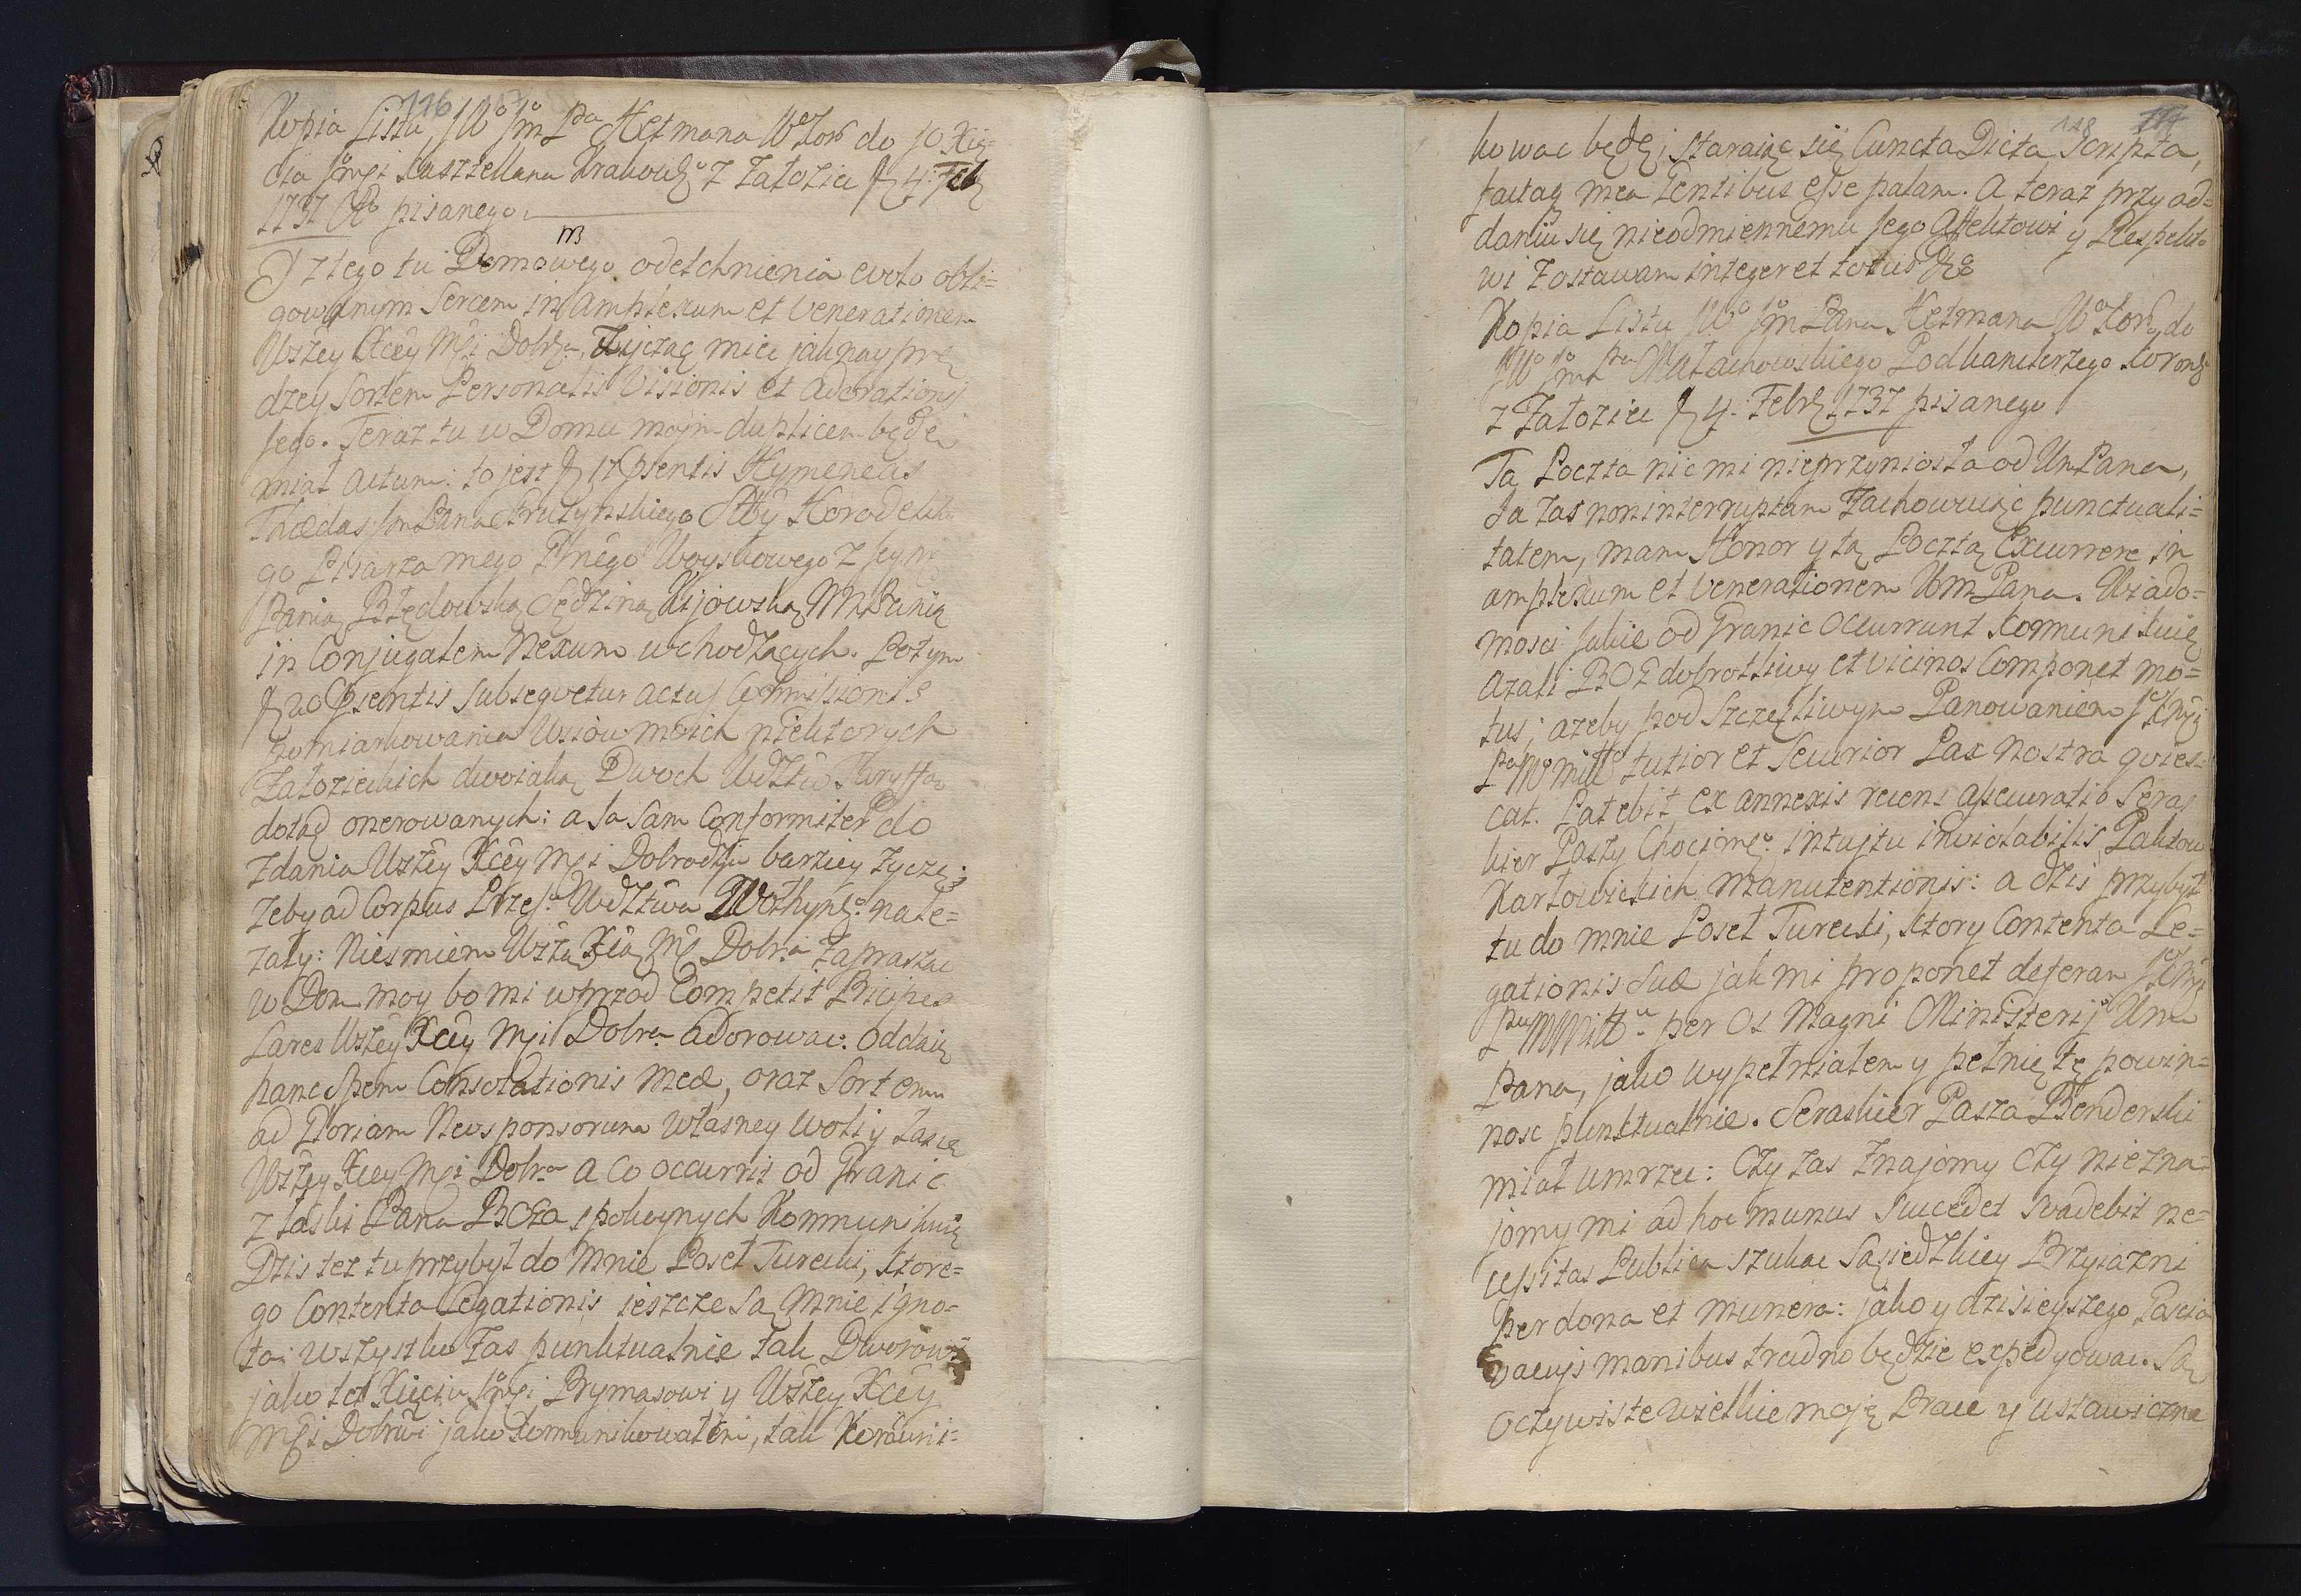 116 117
Kopia Listu JWo Jm Pa Hetmana W Kor do JO Xię=
cia Jmci Kasztellana Krakowo z Załoziec D 4: Feb
1737 Ao pisanego.
I z tego tu Domowego odetchnienia evolo obli=
gowanym Sercem in amplexum et venerationem
Wszey Xcey Mci Dobra, Zyicząc mieć jak nayprę
dzey Sortem Personalis Visionis et adorationis
Jego. Teraz tu w Domu moym duplicem będę
miał actum: to jest D 17 Psentis Hymeneas
Thædas Jm Pana Strutynskiego Stty Horodelsk
go Pisarza mego Plnego Woyskowego z Jeym
Panią Błędowską Sędziną Kijowską M Panią
in Conjugalem Nexum wchodzących. Potym
D 20 Psentis subseqvetur actus Commissionis
pomiarkowania Wsiow moich niektorych
Załozieckich dwoiaką Dwoch Wdztw Taryffą
dotąd onerowanych: a Ja sam Conformiter do
zdania Wszey Xcey Mci Dobrodzja barziey życzę;
zeby ad Corpus Przeso Wdztwa Wołhynso nale=
zały: Niesmiem Wszą Xcią Mć Dobra zapraszac
w Dom moy bo mi wprzod Competit Pricipes
Lares Wszey Xcey Mci Dobra adorowac. Oddaię
hanc spem Consolationis meæ, oraz Sortem
ad Gloriam Neosponsorum własney woli y Łasce
Wszey Xcey Mci Dobra a co occurrit od Granic
z łaski Pana BOga spokoynych Kommunikuię
Dzis tez tu przybył do mnie Poseł Turecki, ktore=
go Contenta Legationis ieszcze są mnie igno=
ta: wszystko zas punktualnie tak Dworowi
jako tez Xięciu Jmci Prymasowi y Wszey Xcey
Mci Dobrwi jako kommunikowałem, tak Kommuni=
118
kowac będę; staraiąc się Cuncta Dicta, Scripta,
factaq mea Gentibus esse palam. A teraz przy od=
daniu się nieodmiennemu Jego Affektowi y Respekto
wi zostawam integer et totus &c
Kopia Listu JWo Jm Pana Hetmana W Kor do
JWo Jm Pa Małachowskiego Podkanclerzego Koron
z Załoziec D 4: Febr 1737 pisanego
Tą Poczta nic mi nieprzyniosła od Um Pana,
Ja zas non interruptam Zachowuiąc punctuali=
tatem, mam Honor y tą Pocztą Excurrere in
amplexum et venerationem Wm Pana. Wiado=
mosci jakie od Granic occurrunt kommunikuię
azali BOg dobrotliwy et vicinos Componet mo=
tus; azeby pod Szczęśliwym Panowaniem JKMci
Pa N Miłło tutior et Securior Pax nostra qvies=
cat. Patebit ex annexis recens assecuratio Seras
kier Paszy Chocimso intuitu inviolabilis Paktow
Karłowickich manutentionis: a dzis przybył
tu do mnie Poseł Turecki, ktory Contenta Le=
gationis suæ jak mi proponet deferam JKMci
Pu N Miłłu per Os Magni Ministerij Um
Pana, jako wypełniałem y pełnię tę powin=
nosc punktualnie. Seraskier Pasza Benderski
miał umrzec: Czy zas znajomy czy niezna=
jomy mi ad hoc munus succedet svadebit ne=
cessitas Publica szukac Sąsiedzkiey Przyiazni
per dona et munera: jako y dzisieyszego Posła
vacujs manibus trudno będzie expedyowac. Są
oczywiste wielkie moje Prace y ustawiczne